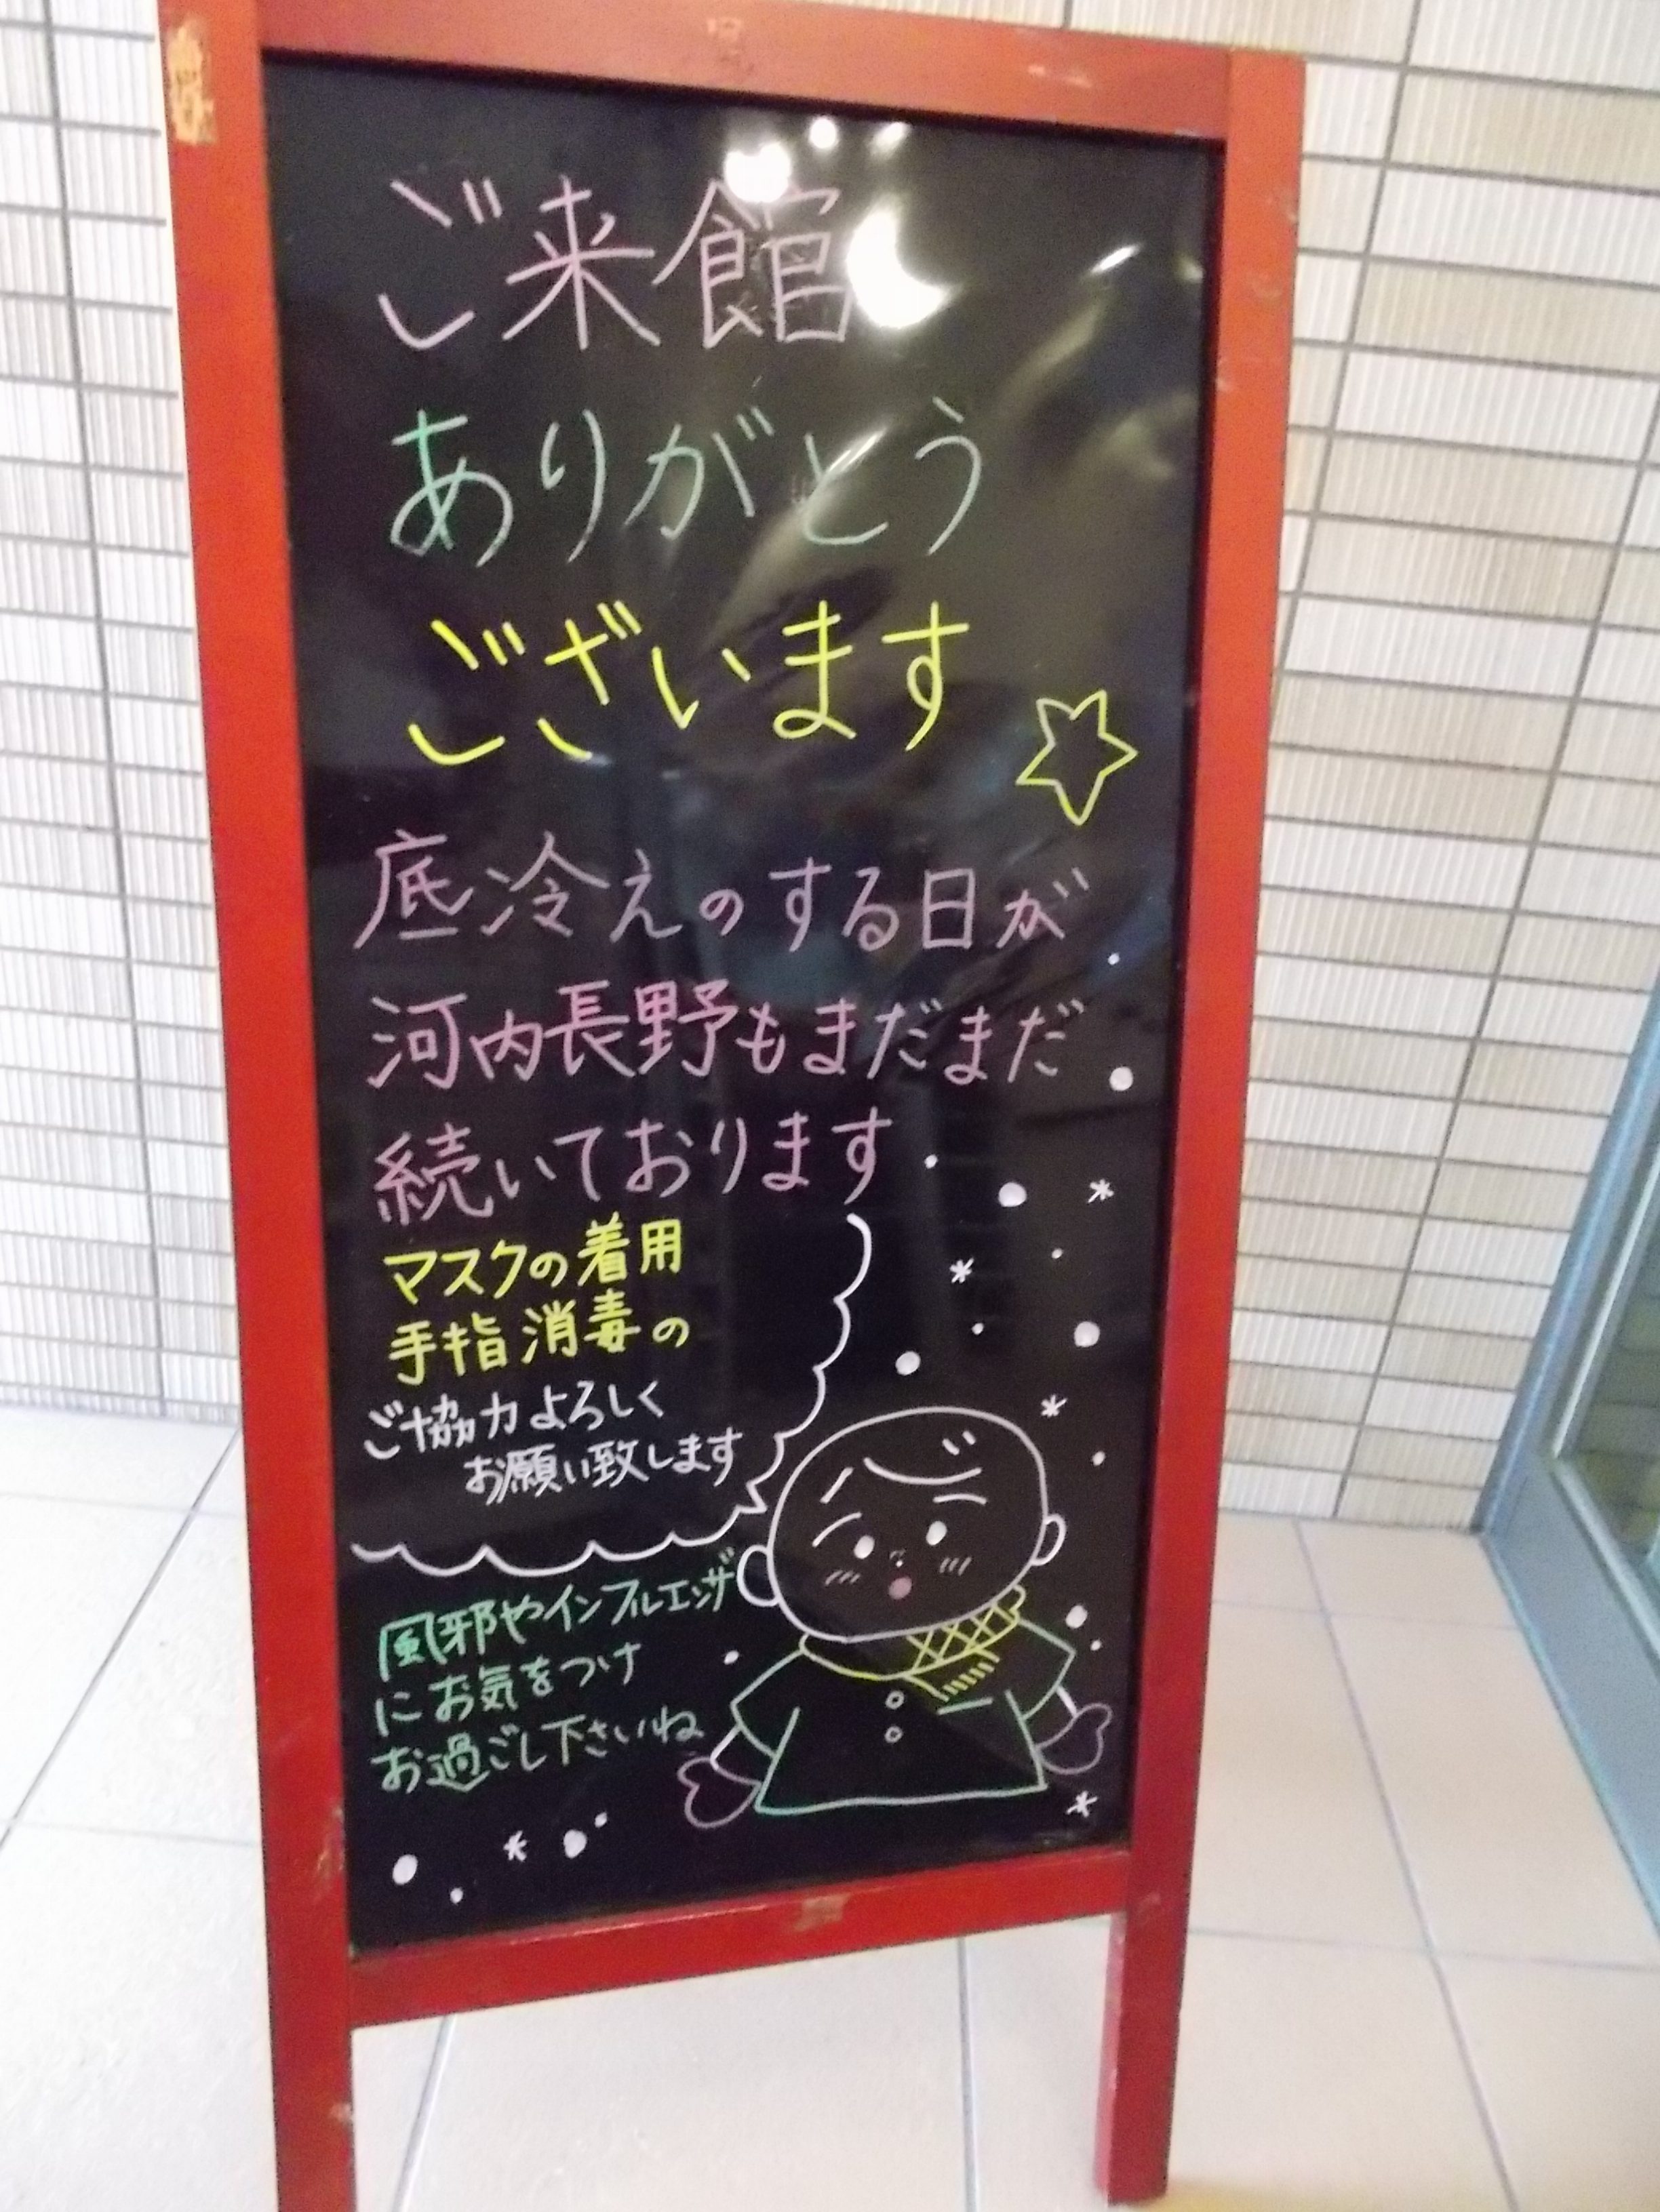 ご来館
ありがとう
ございます
底冷えのする日が
河内長野もまだまだ
続いております
マスクの着用
手指消毒の
ご協力よろしく
お願い致します
風邪やインフルエンザ
にお気をつけ
お過ごし下さいね